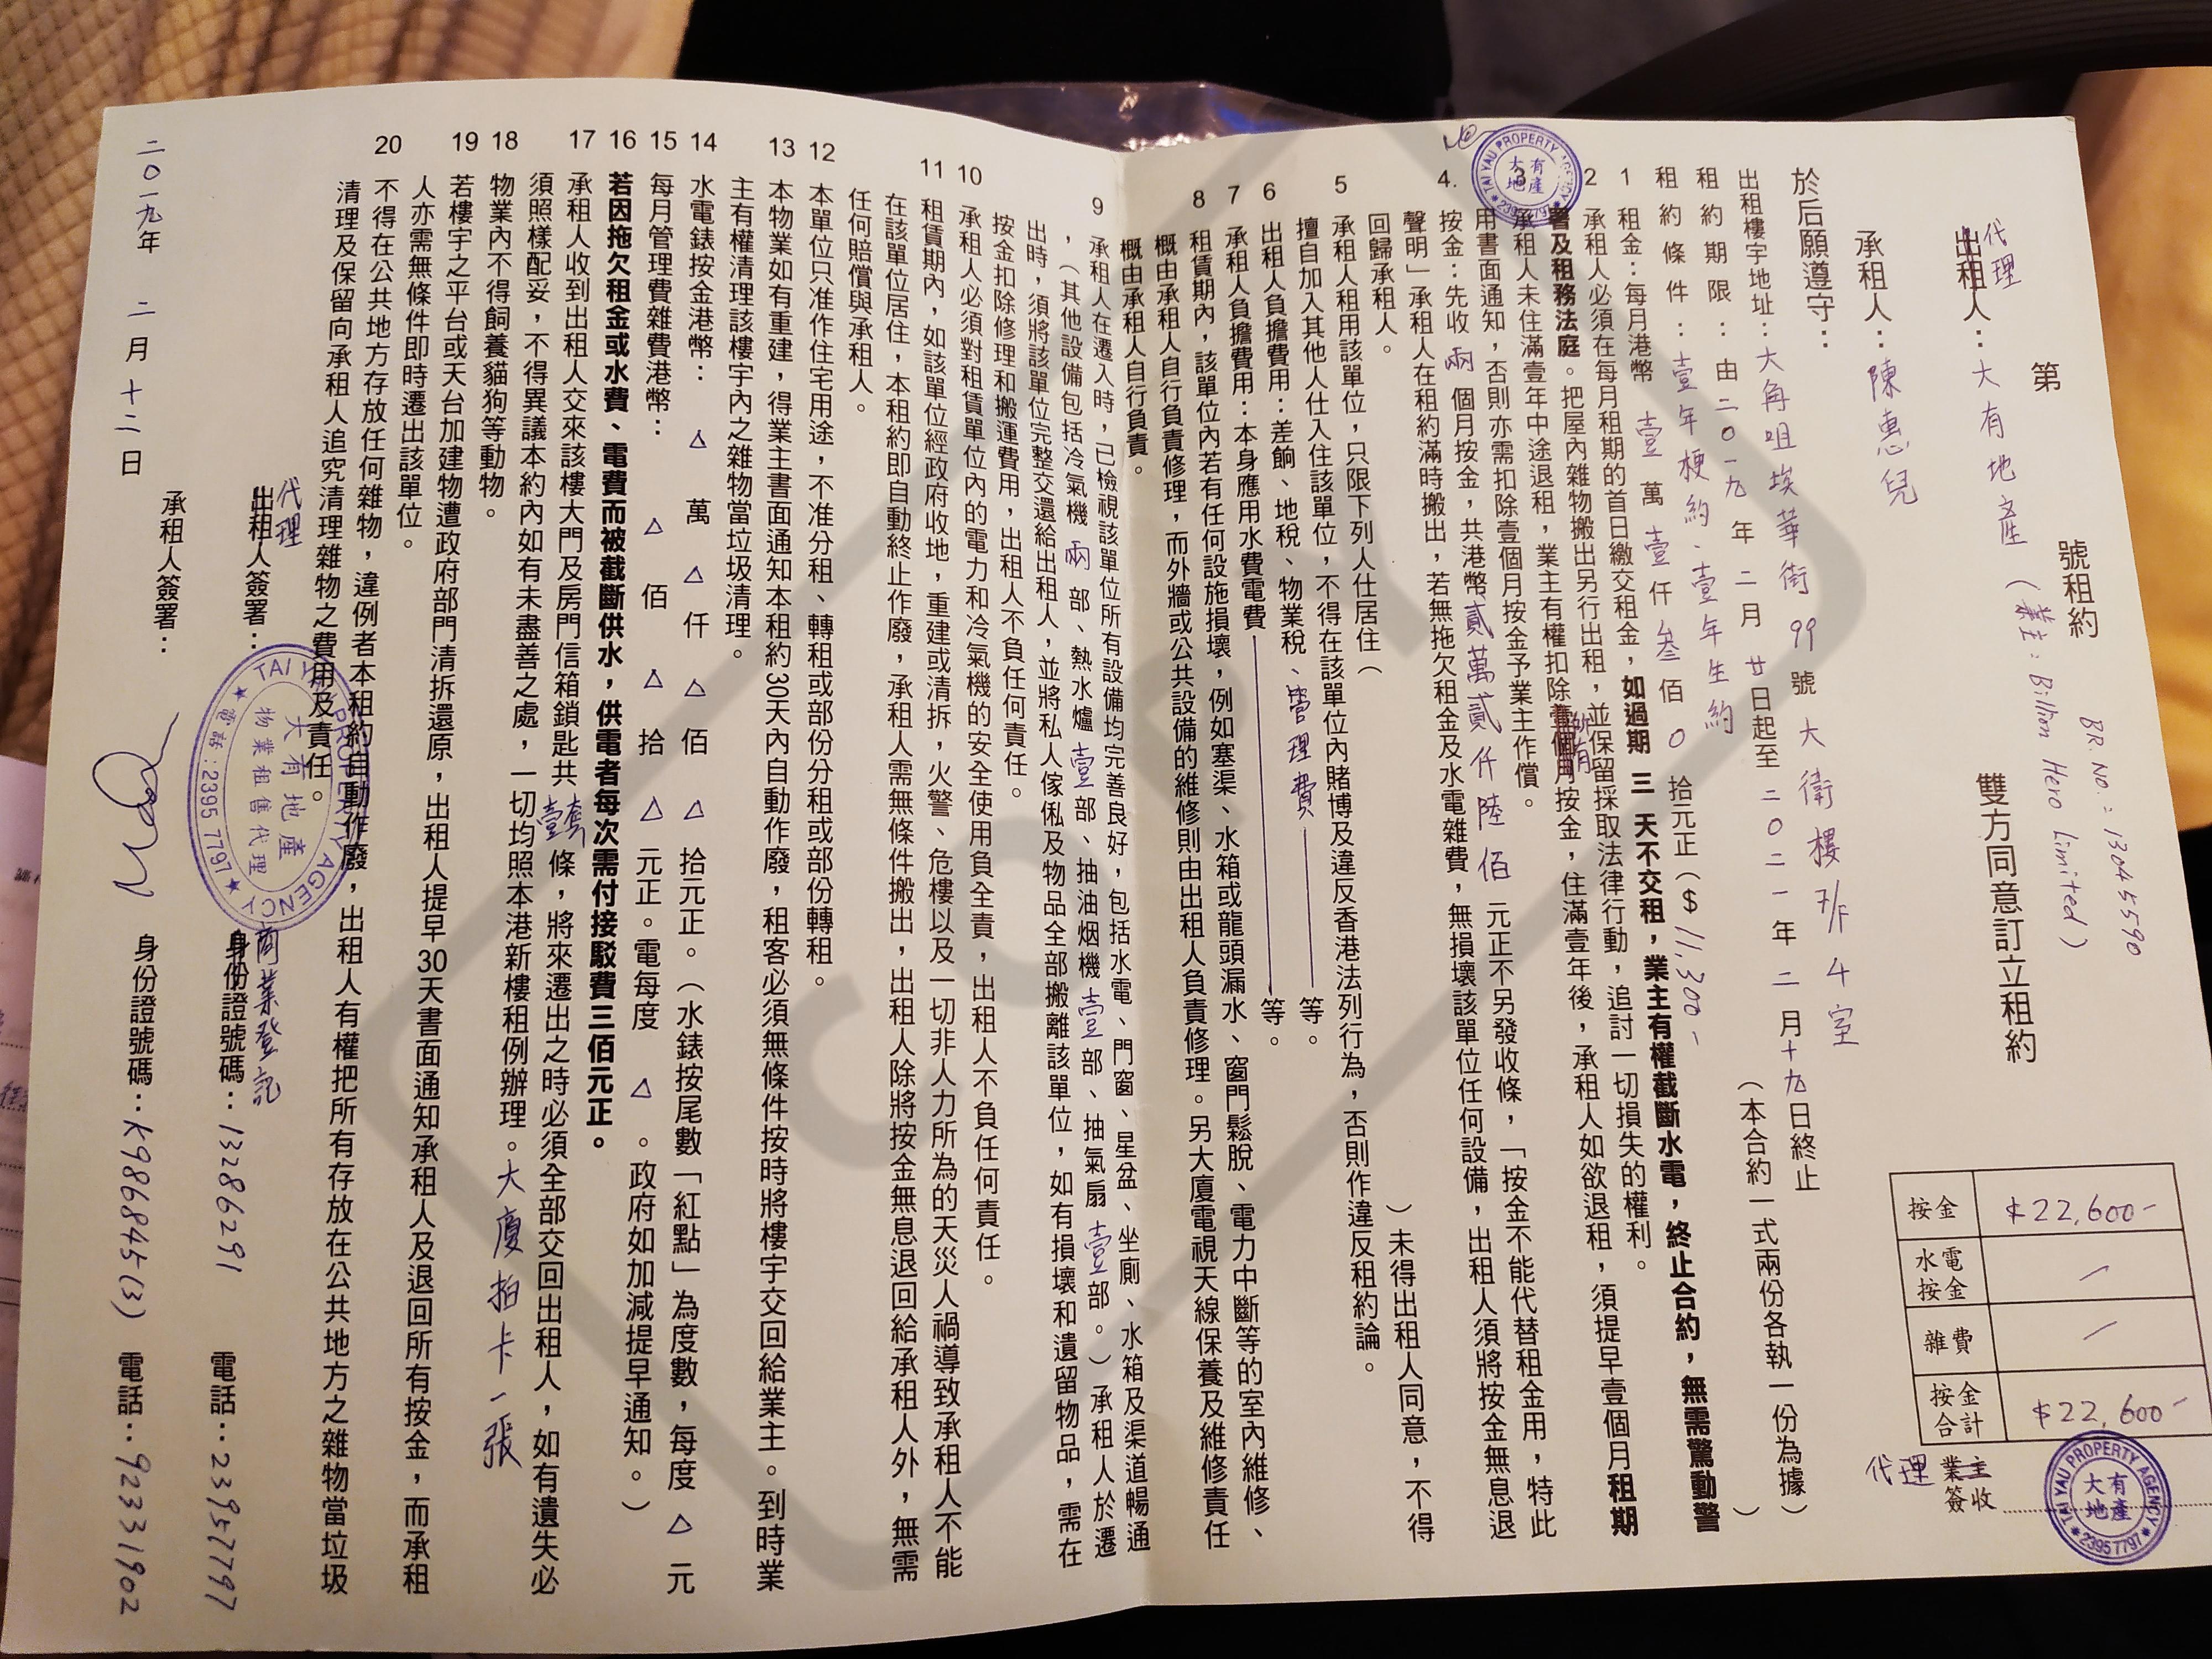 第　　號租約
BR. No.: 13045590
出租人：大有地產（業主：Billion Hero Limited）
代理
雙方同意訂立租約
承租人：陳惠兒
於后願遵守：
出租樓宇地址：大角咀埃華街99號大衛樓7/F 4室
租約期限：由二0一九年二月廿日起至二0二一年二月十九日終止
租約條件：壹年梗約、壹年生約
（本合約一式兩份各執一份為據）
1 租金：每月港幣壹萬壹仟叁佰0拾元正（$11,300-　）
2 承租人必須在每月租期的首日繳交租金，如過期三天不交租，業主有權截斷水電，終止合約，無需驚動警
署及租務法庭。把屋內雜物搬出另行出租，並保留採取法律行動，追討一切損失的權利。
3 承租人未住滿壹年中途退租，業主有權扣除所有按金，住滿壹年後，承租人如欲退租，須提早壹個月租期
用書面通知，否則亦需扣除壹個月按金予業主作償。
4. 按金：先收兩個月按金，共港幣貳萬貳仟陸佰元正不另發收條，「按金不能代替租金用，特此
聲明」承租人在租約滿時搬出，若無拖欠租金及水電雜費，無損壞該單位任何設備，出租人須將按金無息退
回歸承租人。
5 承租人租用該單位，只限下列人仕居住（　　）未得出租人同意，不得
擅自加入其他人仕入住該單位，不得在該單位內賭博及違反香港法列行為，否則作違反租約論。
6 出租人負擔費用：差餉、地稅、物業稅、管理費等。
7 承租人負擔費用：本身應用水費電費等。
8 租賃期內，該單位內若有任何設施損壞，例如塞渠、水箱或龍頭漏水、窗門鬆脫、電力中斷等的室內維修、
概由承租人自行負責修理，而外牆或公共設備的維修則由出租人負責修理。另大廈電視天線保養及維修責任
概由承租人自行負責。
9 承租人在遷入時，已檢視該單位所有設備均完善良好，包括水電、門窗、星盆、坐廁、水箱及渠道暢通
，（其他設備包括冷氣機兩部、熱水爐壹部、抽油烟機壹部、抽氣扇壹部。）承租人於遷
出時，須將該單位完整交還給出租人，並將私人傢俬及物品全部搬離該單位，如有損壞和遺留物品，需在
按金扣除修理和搬運費用，出租人不負任何責任。
10 承租人必須對租賃單位內的電力和冷氣機的安全使用負全責，出租人不負任何責任。
11 租賃期內，如該單位經政府收地，重建或清拆，火警、危樓以及一切非人力所為的天災人禍導致承租人不能
在該單位居住，本租約即自動終止作廢，承租人需無條件搬出，出租人除將按金無息退回給承租人外，無需
任何賠償與承租人。
12 本單位只准作住宅用途，不准分租、轉租或部份分租或部份轉租。
13 本物業如有重建，得業主書面通知本租約30天內自動作廢，租客必須無條件按時將樓宇交回給業主。到時業
主有權清理該樓宇內之雜物當垃圾清理。
14 水電錶按金港幣：△萬△仟△佰△拾元正。（水錶按尾數「紅點」為度數，每度△元
15 每月管理費雜費港幣：△佰△拾△元正。電每度△。政府如加減提早通知。）
16 若因拖欠租金或水費、電費而被截斷供水，供電者每次需付接駁費三佰元正。
17 承租人收到出租人交來該樓大門及房門信箱鎖匙共壹套條，將來遷出之時必須全部交回出租人，如有遺失必
須照樣配妥，不得異議本約內如有未盡善之處，一切均照本港新樓租例辦理。大廈拍卡一張
18 物業內不得飼養貓狗等動物。
19 若樓宇之平台或天台加建物遭政府部門清拆還原，出租人提早30天書面通知承租人及退回所有按金，而承租
人亦需無條件即時遷出該單位。
20 不得在公共地方存放任何雜物，違例者本租約自動作廢，出租人有權把所有存放在公共地方之雜物當垃圾
清理及保留向承租人追究清理雜物之費用及責任。
代理
出租人簽署：
商業登記
身份證號碼：13286291
電話：23957797
承租人簽署：
身份證號碼：K986845(3)
電話：92331902
二0一九年 二月十二日
按金 $22,600-
水電按金 /
雜費 /
按金合計 $22,600-
代理 業主簽收
TAI YAU PROPERTY AGENCY
大有地產
23957797
TAI YAU PROPERTY AGENCY
大有地產
23957797
TAI YAU PROPERTY AGENCY
大有地產
物業租售代理
電話：2395 7797
COPY